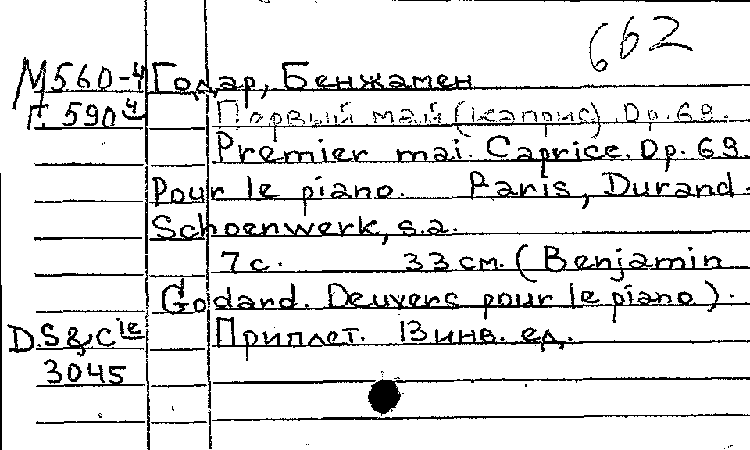 662
М560-4 Годар, Бенжамен
Г. 590 4 Первый май (каприс). Op. 69.
Premier mai. Caprice. Op. 69
Pour le piano. Paris, Durand-
Schoenwerk, s.a.
7 с. 33 см. (Benjamin
Godard. Oeuvers pour le piano).
D.S&Cie Приплет. 13 инв. ед.
3045